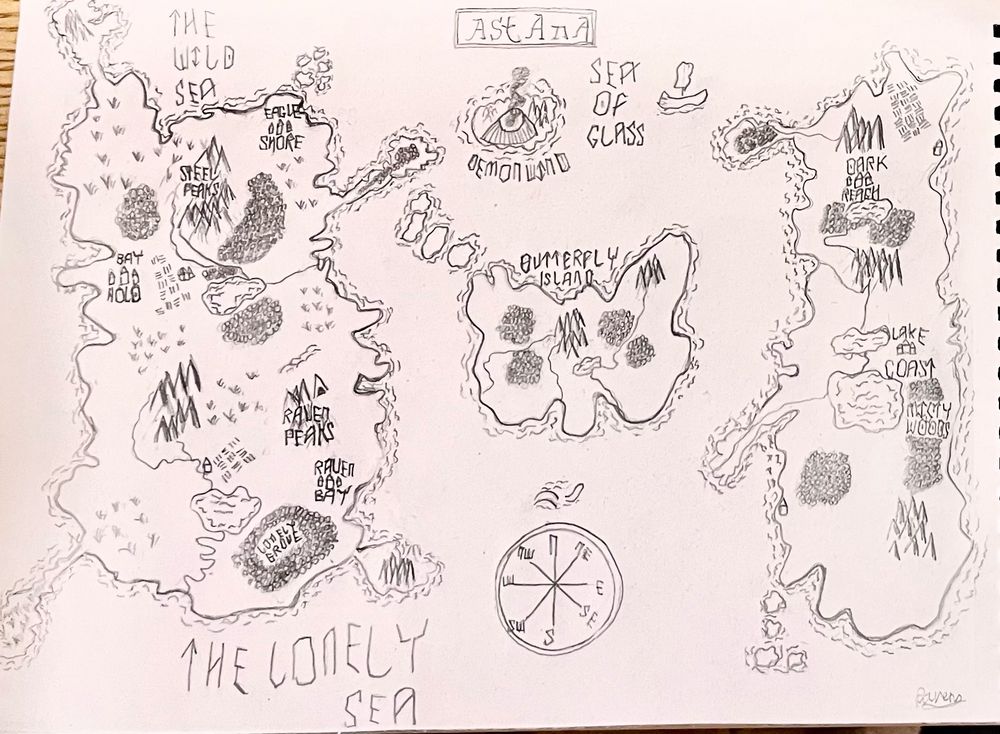 ASTANA
THE
WILD
SEA
EAGLE
SHORE
STEEL
PEAKS
SEA
OF
GLASS
DEMON LAND
DARK
REACH
BAY
HOLD
BUTTERFLY
ISLAND
LAKE
COAST
MISTY
WOODS
RAVEN
PEAKS
RAVEN
BAY
LONELY
GROVE
NW N NE
W E
SW S SE
THE LONELY
SEA